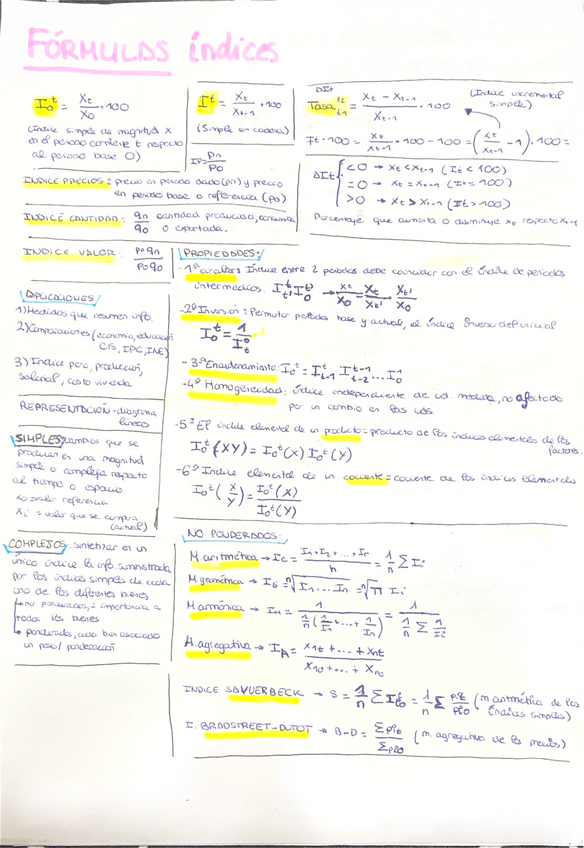 FÓRMULAS índices
I₀ᵗ = Xt/X0 · 100
(Índice simple de magnitud X
en el periodo corriente t respecto
al periodo base 0)
Iᵗ = Xt/Xt-1 · 100
(Simple en cadena)
IP = pn/p0
ΔIt
Tasa t2 t1 = Xt - Xt-1/Xt-1 · 100
(Índice incremental
simple)
It - 100 = Xt/Xt-1 · 100 - 100 = (Xt/Xt-1 - 1) · 100 =
ΔIt { <0 → Xt < Xt-1 (It < 100)
=0 → Xt = Xt-1 (It = 100)
>0 → Xt > Xt-1 (It > 100)
Porcentaje que aumenta o disminuye Xt respecto Xt-1
INDICE PRECIOS: precio en periodo dado (pn) y precio
en periodo base o referencia (p0)
INDICE CANTIDAD: qn/q0 cantidad producida, consumida
o exportada.
INDICE VALOR: pn qn/p0 q0
APLICACIONES
1) Medidas que resumen info.
2) Comparaciones (economía, educación
CIS, IPC, INE)
3) Indice para, producción,
salarial, costo vivienda
REPRESENTACIÓN - diagrama
lineas
SIMPLES, cambios que se
producen en una magnitud
simple o compleja respecto
al tiempo o espacio.
x0 = valor referencia
Xi = valor que se compara
(actual)
COMPLEJOS, sintetizar en un
único índice la info. suministrada
por los índices simples de cada
uno de los diferentes bienes
↳ no ponderados, = importancia a
todos los bienes
↳ ponderados, cada bien asociado
un peso/ponderación
PROPIEDADES:
-1ª Circular: Índice entre 2 periodos debe coincidir con el índice de periodos
intermedios. Iᵗt' Iᵗ'0 → Xt/X0 = Xt/Xt' · Xt'/X0
-2ª Inversión: Permutar periodos base y actual, el índice inverso del inicial
I₀ᵗ = 1/Iₜ⁰
-3ª Encadenamiento: I₀ᵗ = Iᵗt-1 Iᵗ⁻¹t-2 ... I₀¹
-4ª Homogeneidad: índice independiente de ud. medida, no afectado
por un cambio en las uds.
-5ª El índice elemental de un producto = producto de los índices elementales de los
factores.
I₀ᵗ (XY) = I₀ᵗ (X) I₀ᵗ (Y)
-6ª Indice elemental de un cociente = cociente de los índices elementales
I₀ᵗ (X/Y) = I₀ᵗ (X)/I₀ᵗ (Y)
NO PONDERADOS:
M. aritmética → Ic = I1 + I2 + ... + In/n = 1/n Σ Ii
M. geométrica → IG = ⁿ√I1 ... In = ⁿ√Π Ii
M. armónica → IH = 1/1/n (1/I1 + ... + 1/In) = 1/1/n Σ 1/Ii
M. agregativa → IA = X1t + ... + Xnt/X10 + ... + Xn0
INDICE SAUERBECK → S = 1/n Σ Iᵗp0 = 1/n Σ pit/pi0 (m. aritmética de los
índices simples)
I. BRADSTREET-DUTOT → B-D = Σpit/Σpi0 (m. agregativa de los precios)